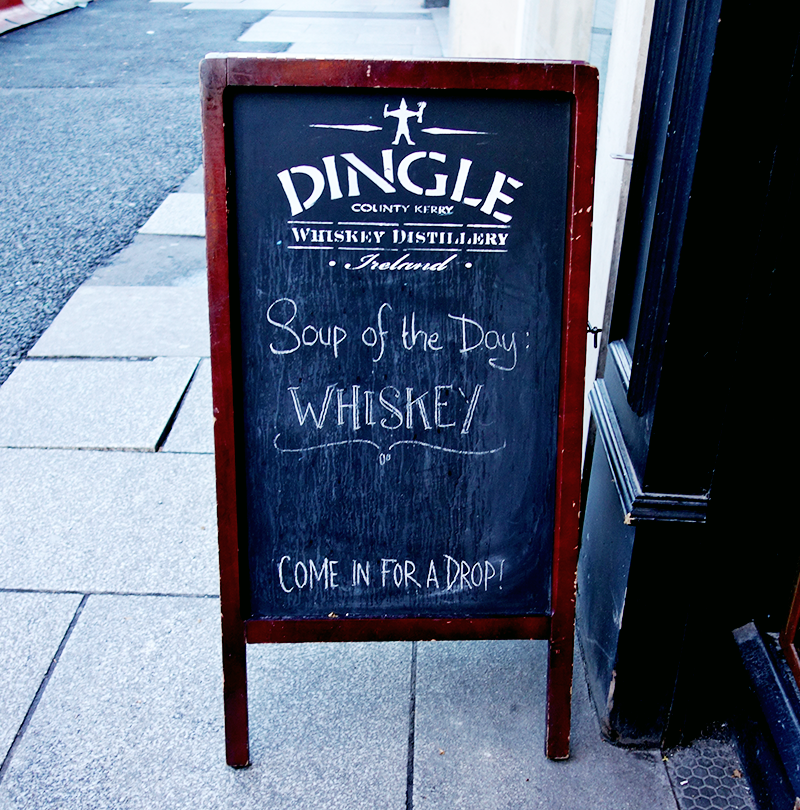 DINGLE
COUNTY KERRY
WHISKEY DISTILLERY
• Ireland •
Soup of the Day:
WHISKEY
COME IN FOR A DROP!